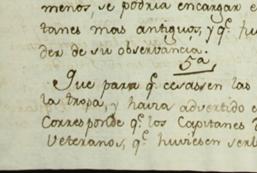 menos, se podria encargar e
tanes mas antiguos, y q.e hu
der de su observancia.
5a
Que para q.e cesassen las
la tropa, y havia advertido e
Corresponde q.e los Capitanes
Veteranos, q.e huviesen ser